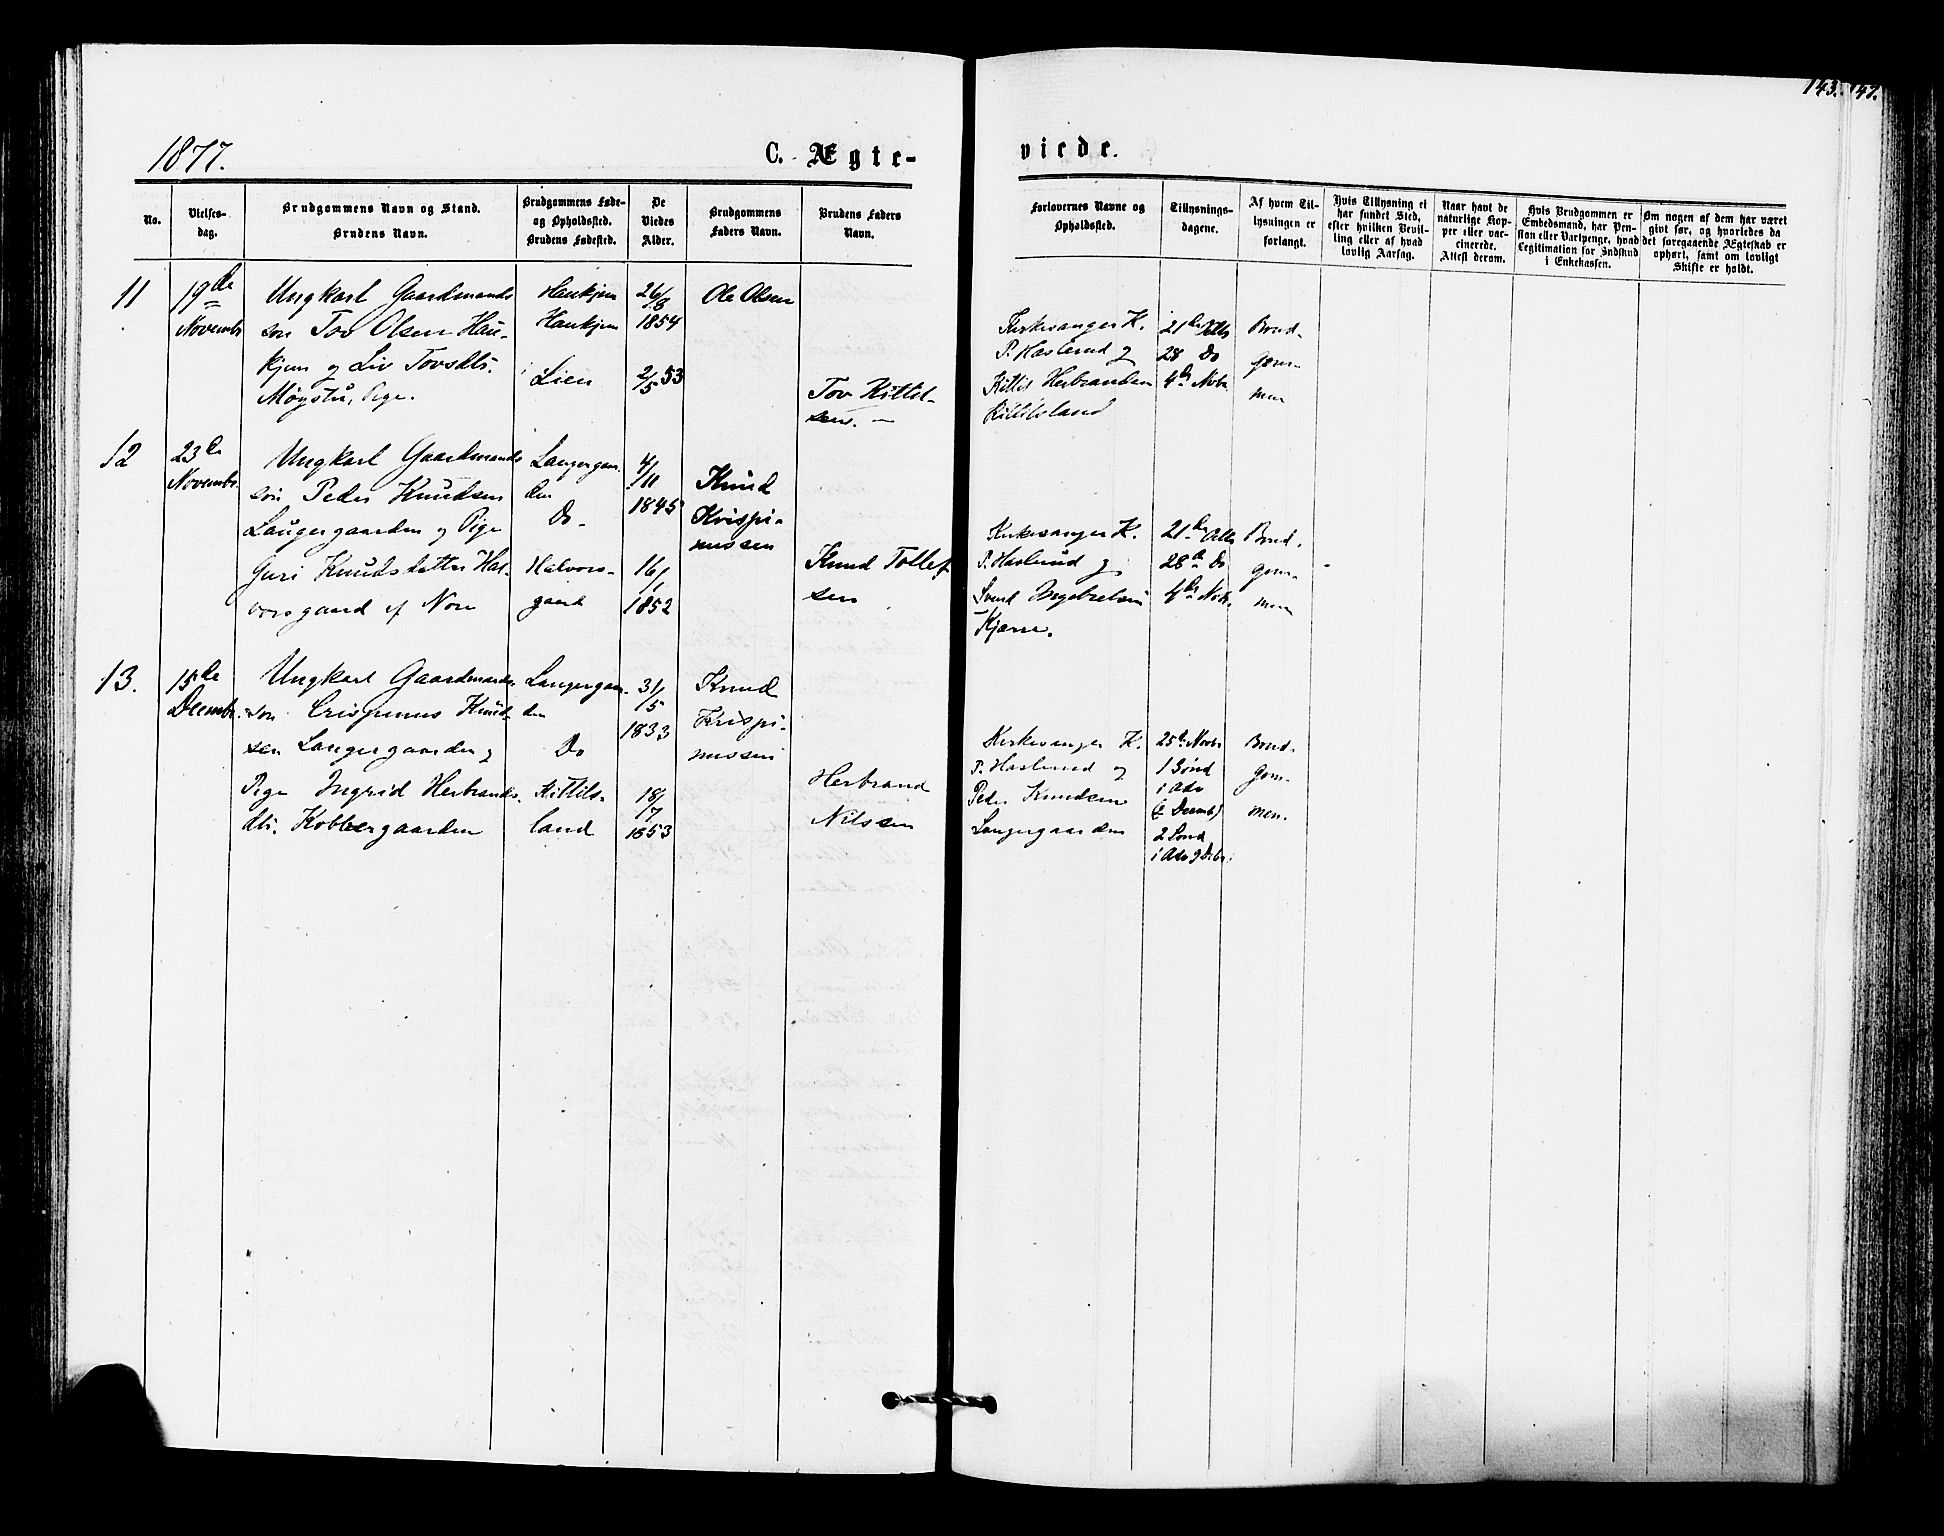 143. 147.
1877.
C. Ægte-
viede.
No.
Vielses-
dag.
Brudgommens Navn og Stand.
Brudens Navn.
Brudgommens Føde-
og Opholdssted.
Brudens Fødested.
De
Viedes
Alder.
Brudgommens
Faders Navn.
Brudens Faders
Navn.
Forlovernes Navne og
Opholdssted.
Tillysnings-
dagene.
Af hvem Til-
lysningen er
forlangt.
Hvis Tillysning ei
har fundet Sted,
efter hvilken Bevil-
ling eller af hvad
lovlig Aarsag.
Naar havt de
naturlige Kop-
per eller vac-
cinerede.
Attest derom.
Hvis Brudgommen er
Embedsmand, har Pen-
sion eller Vartpenge, hvad
Legitimation for Indskud
i Enkekassen.
Om nogen af dem har været
givt før, og hvorledes da
det foregaaende Ægteskab er
ophørt, samt om lovligt
Skifte er holdt.
11
19de
Novembr
Ungkarl Gaardmands
søn Tov Olsen Hau-
kjem og Liv Tovsdtr.
Møystu, Pige.
Haukjem
Haukjem
Lien
26/8
1854
2/5 53
Ole Olsen
Tov Kittil-
sen. —
Kirkesanger K.
P. Haslerud og
Kittil Herbrandsen
Kittilsland
21de
28 Do
4de Novbr.
Brud-
gom-
men
12
23de
Novembr.
Ungkarl Gaardmands
søn Peder Knudsen
Laugergaarden og Pige
Guri Knudsdatter Hal-
vorsgaard af Nore
Laugergaar-
den
Do.
Halvors-
gaard
4/11
1845
16/1
1852
Knud
Krispi-
nussen
Knud Tollef-
sen
Kirkesanger K.
P. Haslerud og
Svend Ingebretsen
Kjærre.
21de
28de Do
4de Novbr.
Brud-
gom-
men
13.
15de
Decembr.
Ungkarl Gaardmands-
søn Crispinus Knud-
sen Laugergaarden og
Pige Ingrid Herbrands-
dtr. Kobbergaarden
Laugergaar-
den
Do
Kittils-
land
31/5
1833
18/7
1853
Knud
Krispi-
nussen
Herbrand
Nilssen
Kirkesanger K.
P. Haslerud og
Peder Knudsen
Laugergaarden
25de Novbr
1 Sønd
i Adv
(2 Decemb)
2 Sønd
i Adv 9 Decbr.
Brud-
gom-
men.